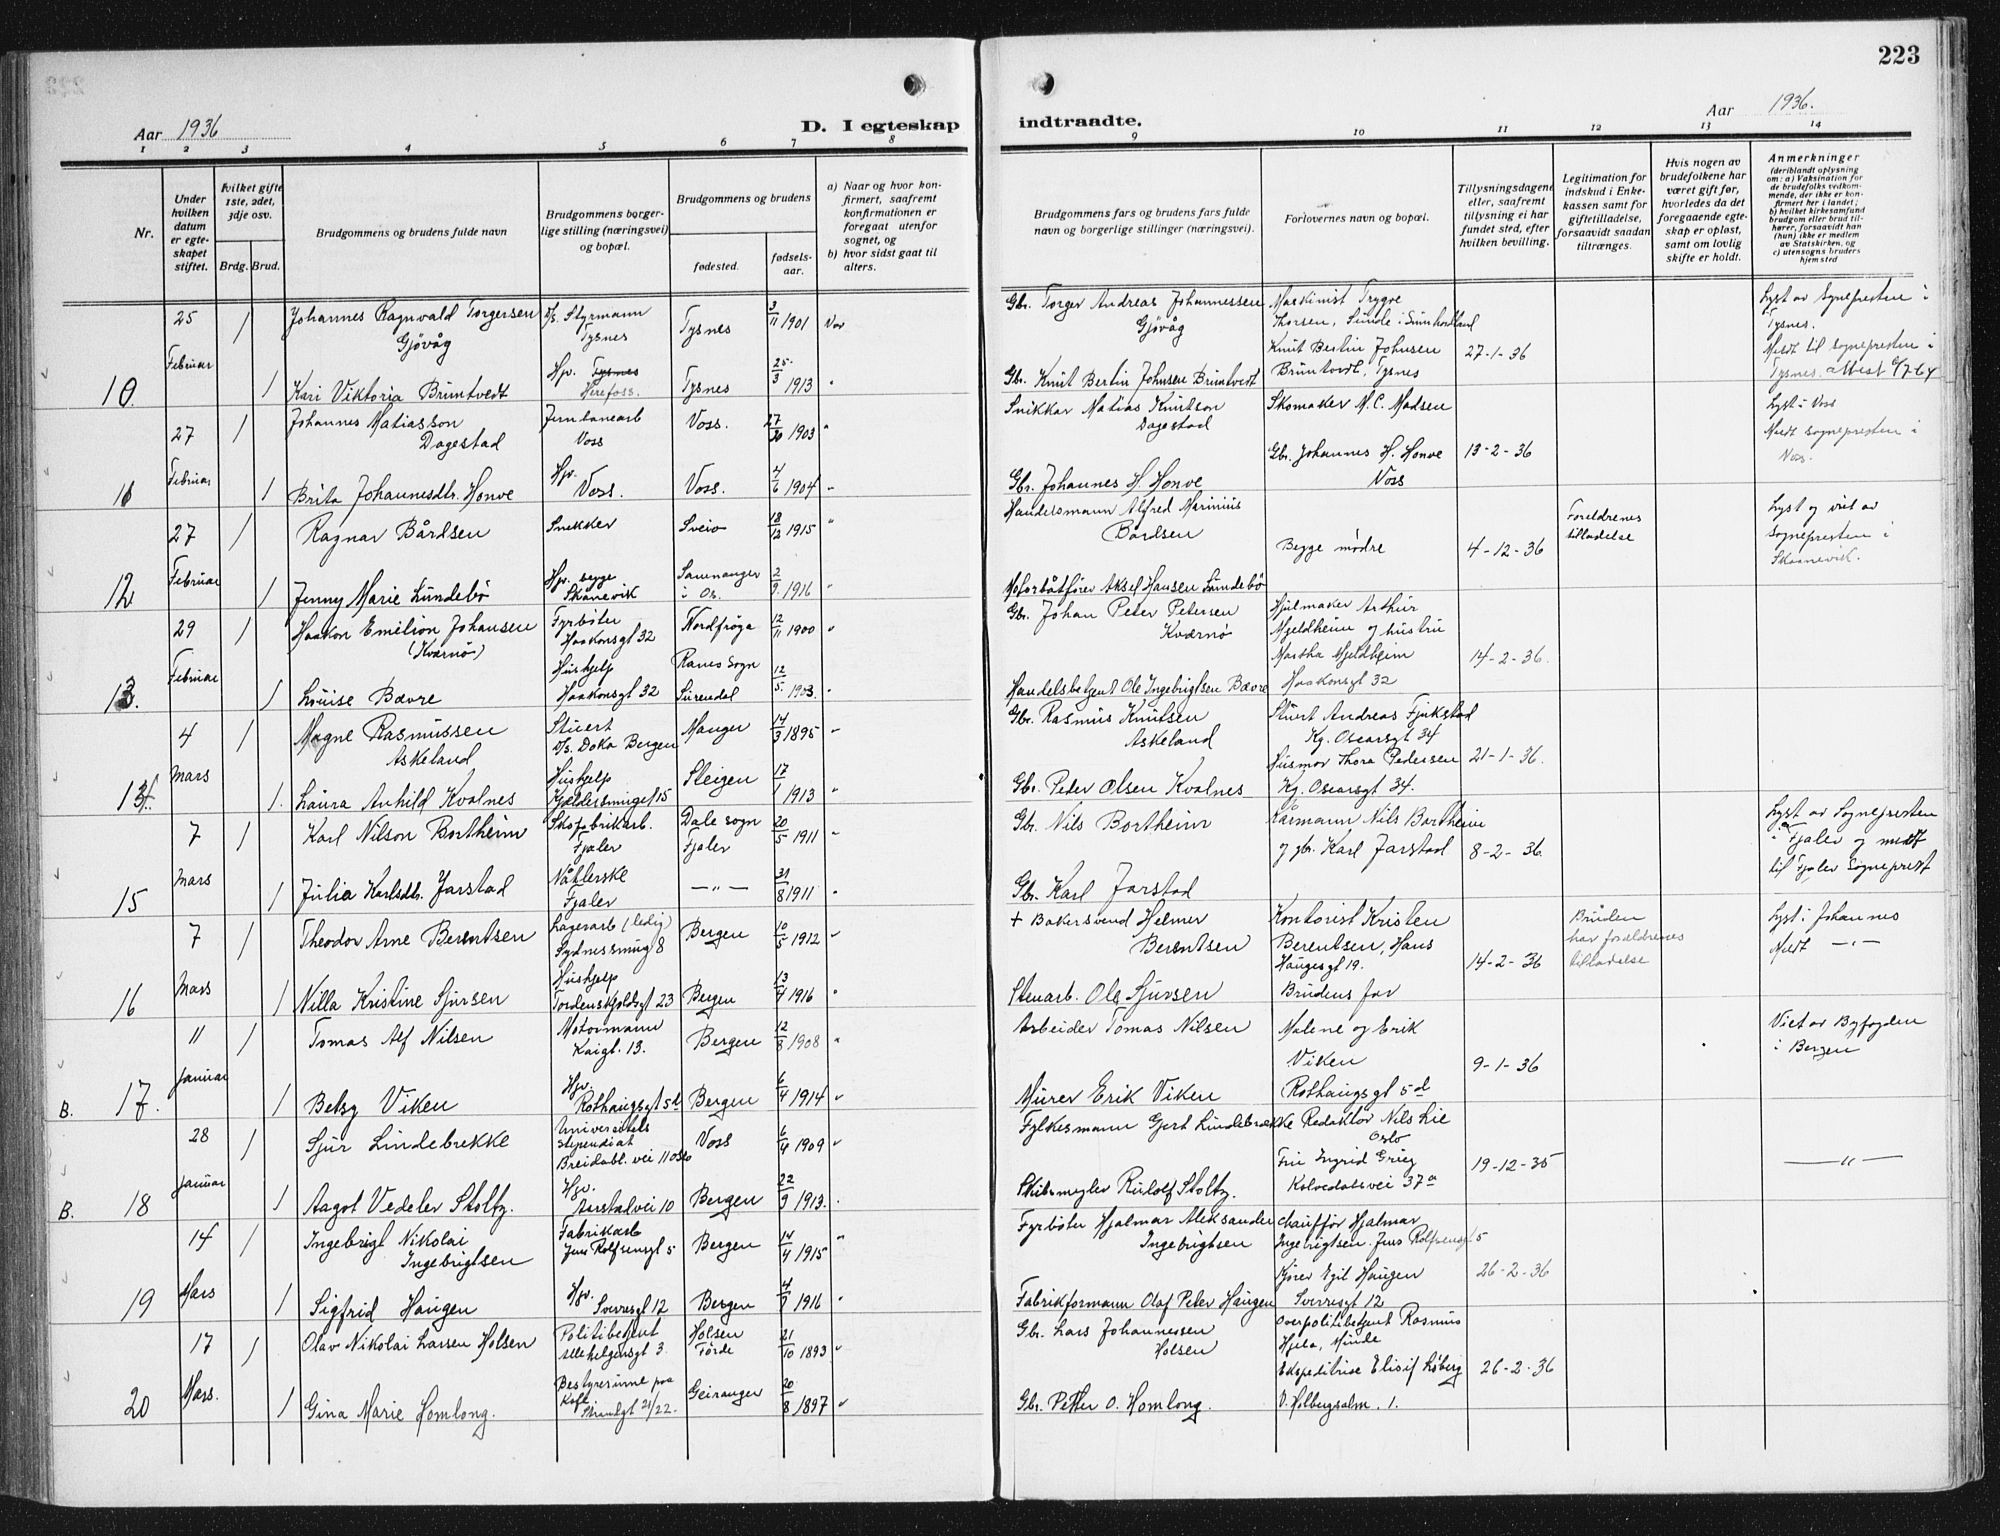 223
Aar 1936
D. I egteskap
indtraadte.
Aar 1936.
1 2 3 4 5 6 7 8
9 10 11 12 13 14
Nr.
Under hvilken datum er egteskapet stiftet.
Ivilket gifte 1ste, 2det, 3dje osv.
Brdg. Brud.
Brudgommens og brudens fulde navn
Brudgommens borgerlige stilling (næringsvei) og bopæl.
Brudgommens og brudens
fødested.
fødselsaar.
a) Naar og hvor konfirmert, saafremt konfirmationen er foregaat utenfor sognet, og
b) hvor sidst gaat til alters.
Brudgommens fars og brudens fars fulde navn og borgerlige stillinger (næringsvei).
Forlovernes navn og bopæl.
Tillysningsdagene eller, saafremt tillysning ei har fundet sted, efter hvilken bevilling.
Legitimation for indskud i Enkekassen samt for giftetilladelse, forsaavidt saadan tiltrænges.
Hvis nogen av brudefolkene har været gift før, hvorledes da det foregaaende egteskap er opløst, samt om lovlig skifte er holdt.
Anmerkninger
(deriblandt oplysning om: a) Vaksination for de brudefolks vedkommende, der ikke er konfirmert her i landet; b) hvilket kirkesamfund brudgom eller brud tilhører, forsaavidt han (hun) ikke er medlem av Statskirken, og c) utensogns bruders hjemsted
10. 25 Februar
1 Johannes Ragnvald Torgersen Gjövåg
D/s. Styrmann Tysnes
Tysnes 3/11 1901 Vor
Gbr. Torger Andreas Johannessen Gjövåg
Maskinist Trygve Thorsen, Sunde i Sunnhordland
1 Kari Viktoria Bruntvedt
Hjv. Tysnes Herefoss.
Tysnes 25/3 1913 "
Gbr. Knut Bertin Johnsen Bruntvedt
Knut Bertin Johnsen Bruntvedt, Tysnes
27-1-36
Lyst av Sognepresten i Tysnes.
Meldt til sognepresten i Tysnes.
11 27 Februar
1 Johannes Matiasson Dagestad
Jernbanearb Voss
Voss. 1903 "
Snikkar Matias Knutson Dagestad
Skomaker M. C. Madsen
1 Brita Johannesdtr. Honve
Hjv. Voss.
Voss. 4/6 1904 "
Gbr. Johannes H. Honve
Gbr. Johannes H. Honve Voss
13-2-36
Lyst i Voss
Meldt sognepresten i Voss.
12 27 Februar
1 Ragnar Bårdsen
Snekker
Sveio 18/12 1915 "
Handelsmann Alfred Marinius Bårdsen
Begge mødre
4-12-36
Foreldrenes tilladelse
Lyst og viet av sognepresten i Skaanevik.
1 Jenny Marie Lundebö
Hjv. begge Skånevik
Samnanger i Os. 2/9 1916 "
Motorbåtfører Aksel Hansen Lundebö
13. 29 Februar
1 Haakon Emilion Johansen (Kværnø)
Fyrböter Haakonsgt 32
Nordfröya 12/11 1900 "
Gbr. Johan Peter Petersen Kværnø
Hjulmaker Arthur Mjeldheim og hustru Martha Mjeldheim Haakonsgt 32
14-2-36.
1 Louise Bævre
Hushjelp Haakonsgt 32
Ranes sogn Surendal 12/5. 1903. "
Handelsbetjent Ole Ingebrigtsen Bævre
14. 4 Mars
1 Magne Rasmussen Askeland
Stuert D/s. Doka Bergen
Manger 14/3 1895 "
Gbr. Rasmus Knutsen Askeland
Stuert Andreas Fjukstad Kg. Oscarsgt 34
1. Laura Anhild Kvalnes
Hushjelp Kjeldersmuget 15
Steigen 17/1 1913 "
Gbr. Peter Olsen Kvalnes
Husmor Thora Pedersen Kg. Oscarsgt 34.
21-1-36.
15 7 Mars
1 Karl Nilson Bortheim
Skofabrikarb. Fjaler
Dale sogn Fjaler 20/5 1911 "
Gbr. Nils Bortheim
Kårmann Nils Bortheim og gbr. Karl Jarstad
8-2-36.
1 Julia Karlsdtr. Jarstad
Nåtlerske Fjaler
— " — 31/8 1911 "
Gbr. Karl Jarstad
Lyst av Sognepresten i Fjaler og meldt til Fjaler Sogneprest
16 7 Mars
1 Theodor Arne Berentsen
Lagerarb (ledig) Sydnessmug 8
Bergen 10/5 1912 "
+ Bakersvend Helmer Berentsen
Kontorist Kristen Berentsen, Hans Haugesgt 19.
14-2-36
Bruden har foreldrenes tilladelse
Lyst i Johannes
Meldt — " —
1 Nilla Kristine Sjursen
Hushjelp Tordenskjoldsgt 23
Bergen 13/4 1916 "
Stenarb. Ole Sjursen
Brudens far
B. 17. 11 Januar
1 Tomas Alf Nilsen
Motormann Kaigt. 13.
Bergen 12/8 1908 "
Arbeider Tomas Nilsen
Malene og Erik Viken Rothaugsgt 5d
9-1-36
1 Betsy Viken
Hjv. Rothaugsgt 5d
Bergen 6/4 1914 "
Murer Erik Viken
Viet av Byfogden i Bergen
B. 18 28 Januar
1 Sjur Lindebrekke
Universitets stipendiat Breidabl. vei 11 Oslo
Voss 6/4 1909 "
Fylkesmann Gjert Lindebrække
Redaktør Nils Lie Oslo
1 Aagot Vedeler Stoltz.
Hjv. Aarstadvei 10
Bergen 22/9 1913.
Skibsmegler Rudolf Stoltz.
Fru Ingrid Grieg Kalvedalsvei 37a
19-12-35
— " —
19 14 Mars
1 Ingebrigt Nikolai Ingebrigtsen
Fabrikarb Jens Rolfsensgt 5
Bergen 14/4 1915 "
Fyrböter Hjalmar Aleksander Ingebrigtsen
Chauffør Hjalmar Ingebrigtsen. Jens Rolfsensgt 5
1 Sigfrid Haugen
Hjv. Sverresgt 12
Bergen 1916 "
Fabrikformann Olaf Peter Haugen
Kjører Egil Haugen Sverresgt 12
26-2-36
20 17 Mars.
1 Olav Nikolai Larsen Holsen
Politibetjent Allehelgensgt 3.
Holsen Förde 21/10 1893 "
Gbr. Lars Johannessen Holsen
Overpolitibetjent Rasmus Hjela, Minde
1 Gina Marie Homlong.
Bestyrerinne paa Kafe Strandgt 21/22.
Geiranger 20/8 1897 "
Gbr. Petter O. Homlong.
Ekspeditrise Elisif Löberg V. Holbergsalm. 1.
26-2-36